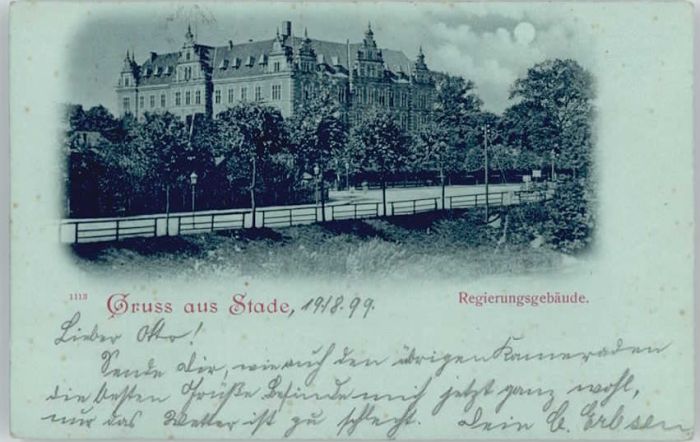 1113
Gruss aus Stade, 19/8.99.
Regierungsgebäude.
Lieber Otto!
Sende Dir, wie auch den übrigen Kameraden
die besten Grüße. Befinde mich jetzt ganz wohl,
nur das Wetter ist zu schlecht. Dein C. Erbsen